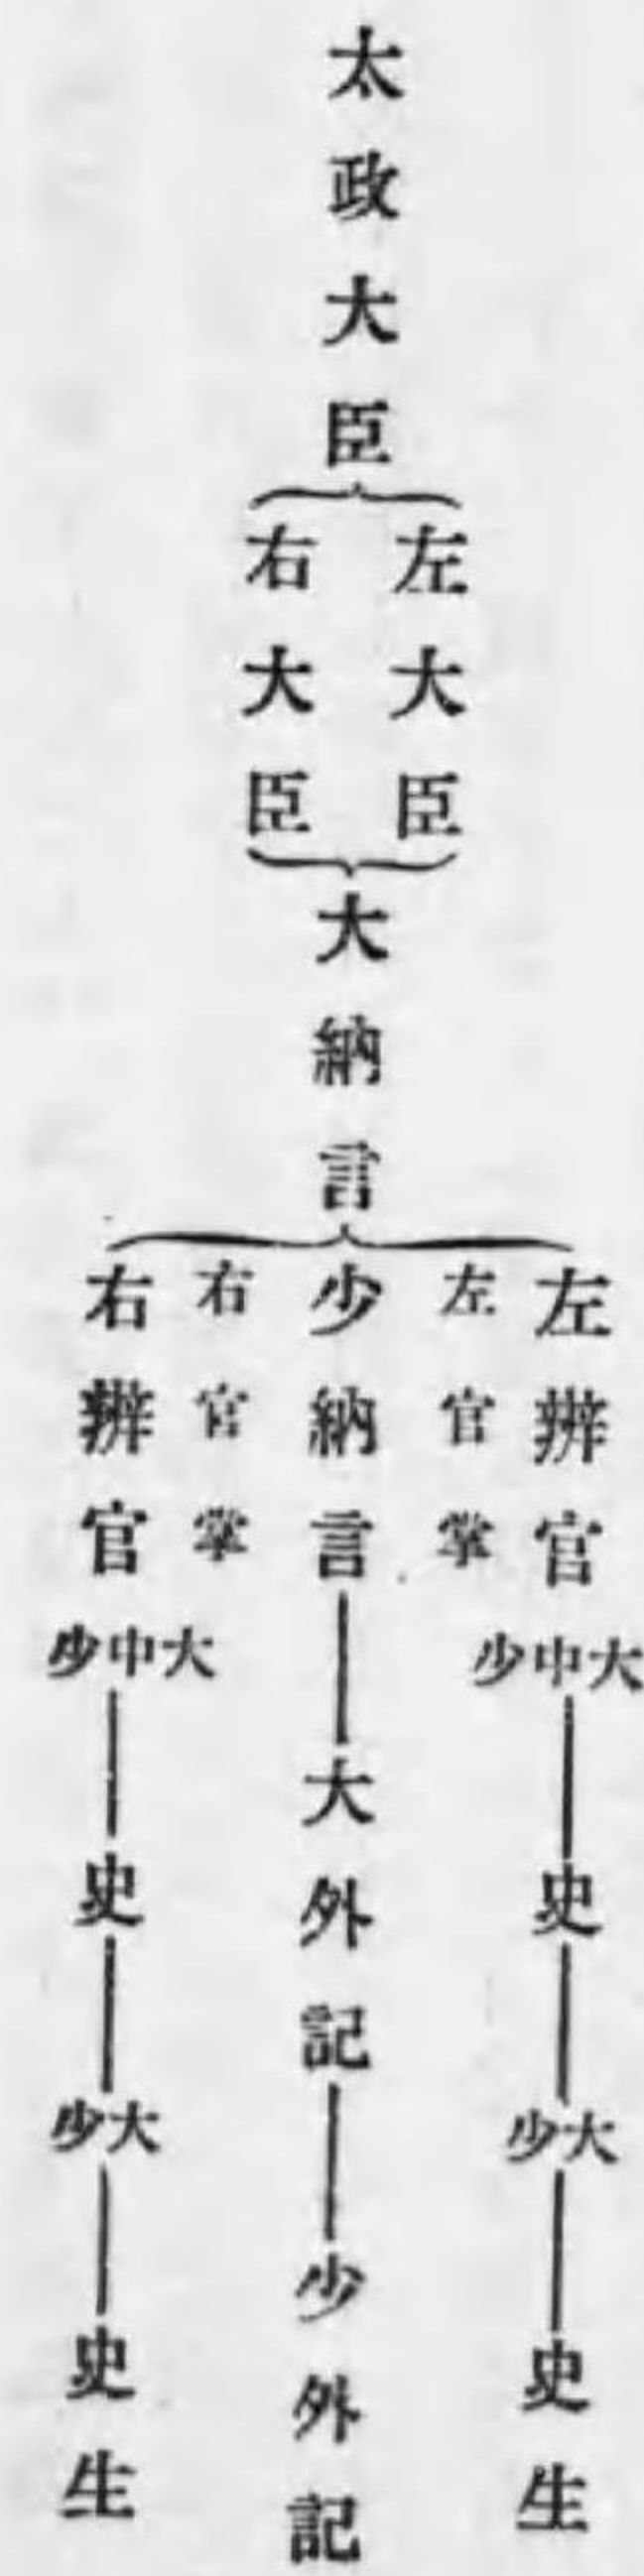 太政大臣
左大臣
右大臣
大納言
左辨官
大中少
史
大少
史生
左官掌
少納言
大外記
少外記
右官掌
右辨官
大中少
史
大少
史生